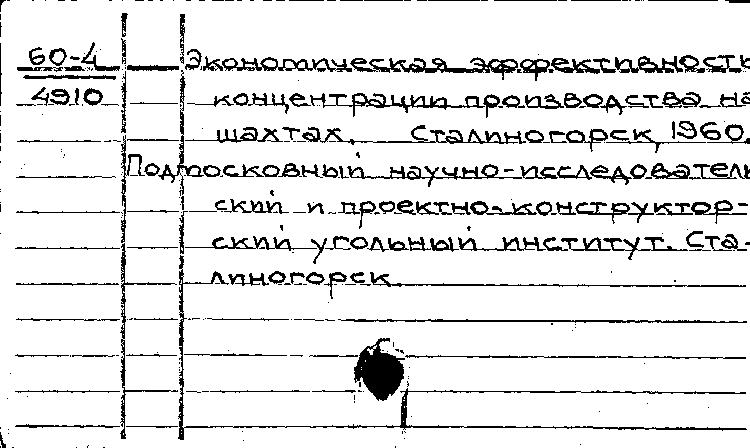 60-4
4910
Экономическая эффективность
концентрации производства на
шахтах. Сталиногорск, 1960.
Подмосковный научно-исследователь
ский и проектно-конструктор-
ский угольный институт. Ста-
линогорск.